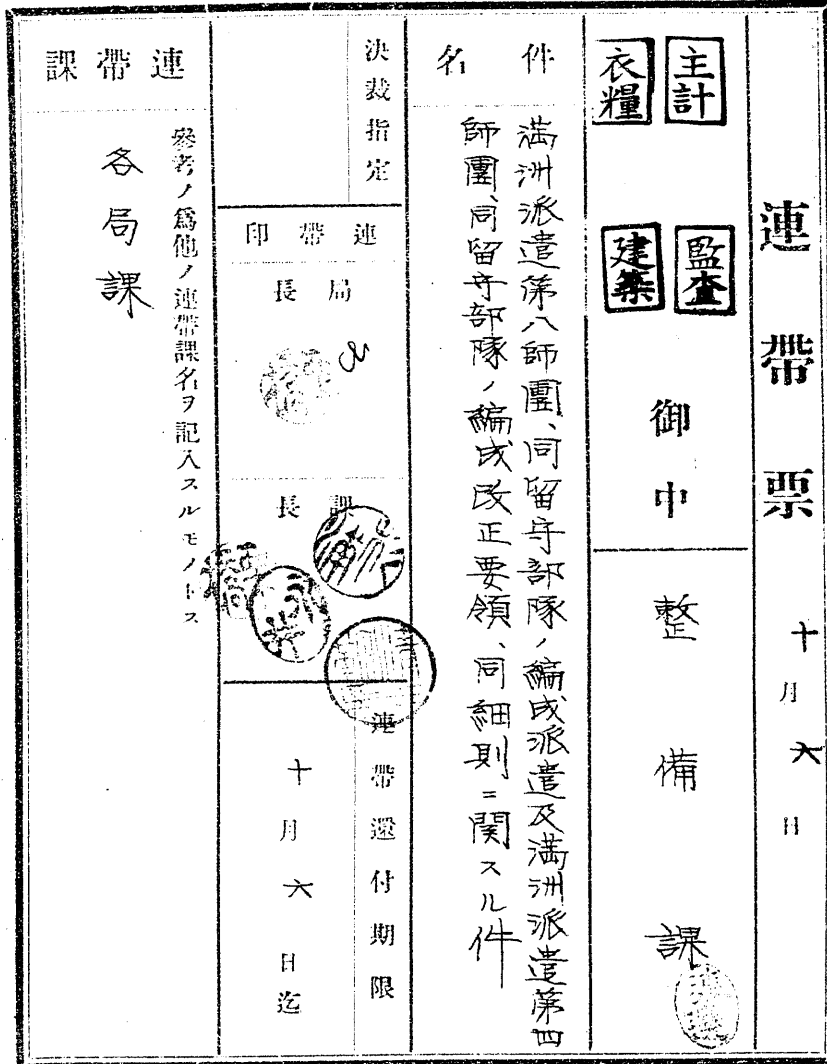 連帶票
十月六日
主計
監査
衣糧
建築
御中
整備課
件名
満洲派遣第八師團、同留守部隊ノ編成派遣及満洲派遣第四
師團、同留守部隊ノ編成改正要領、同細則ニ関スル件
決裁指定
連帶印
局長
課長
連帶還付期限
十月六日迄
連帶課
參考ノ爲他ノ連帶課名ヲ記入スルモノトス
各局課